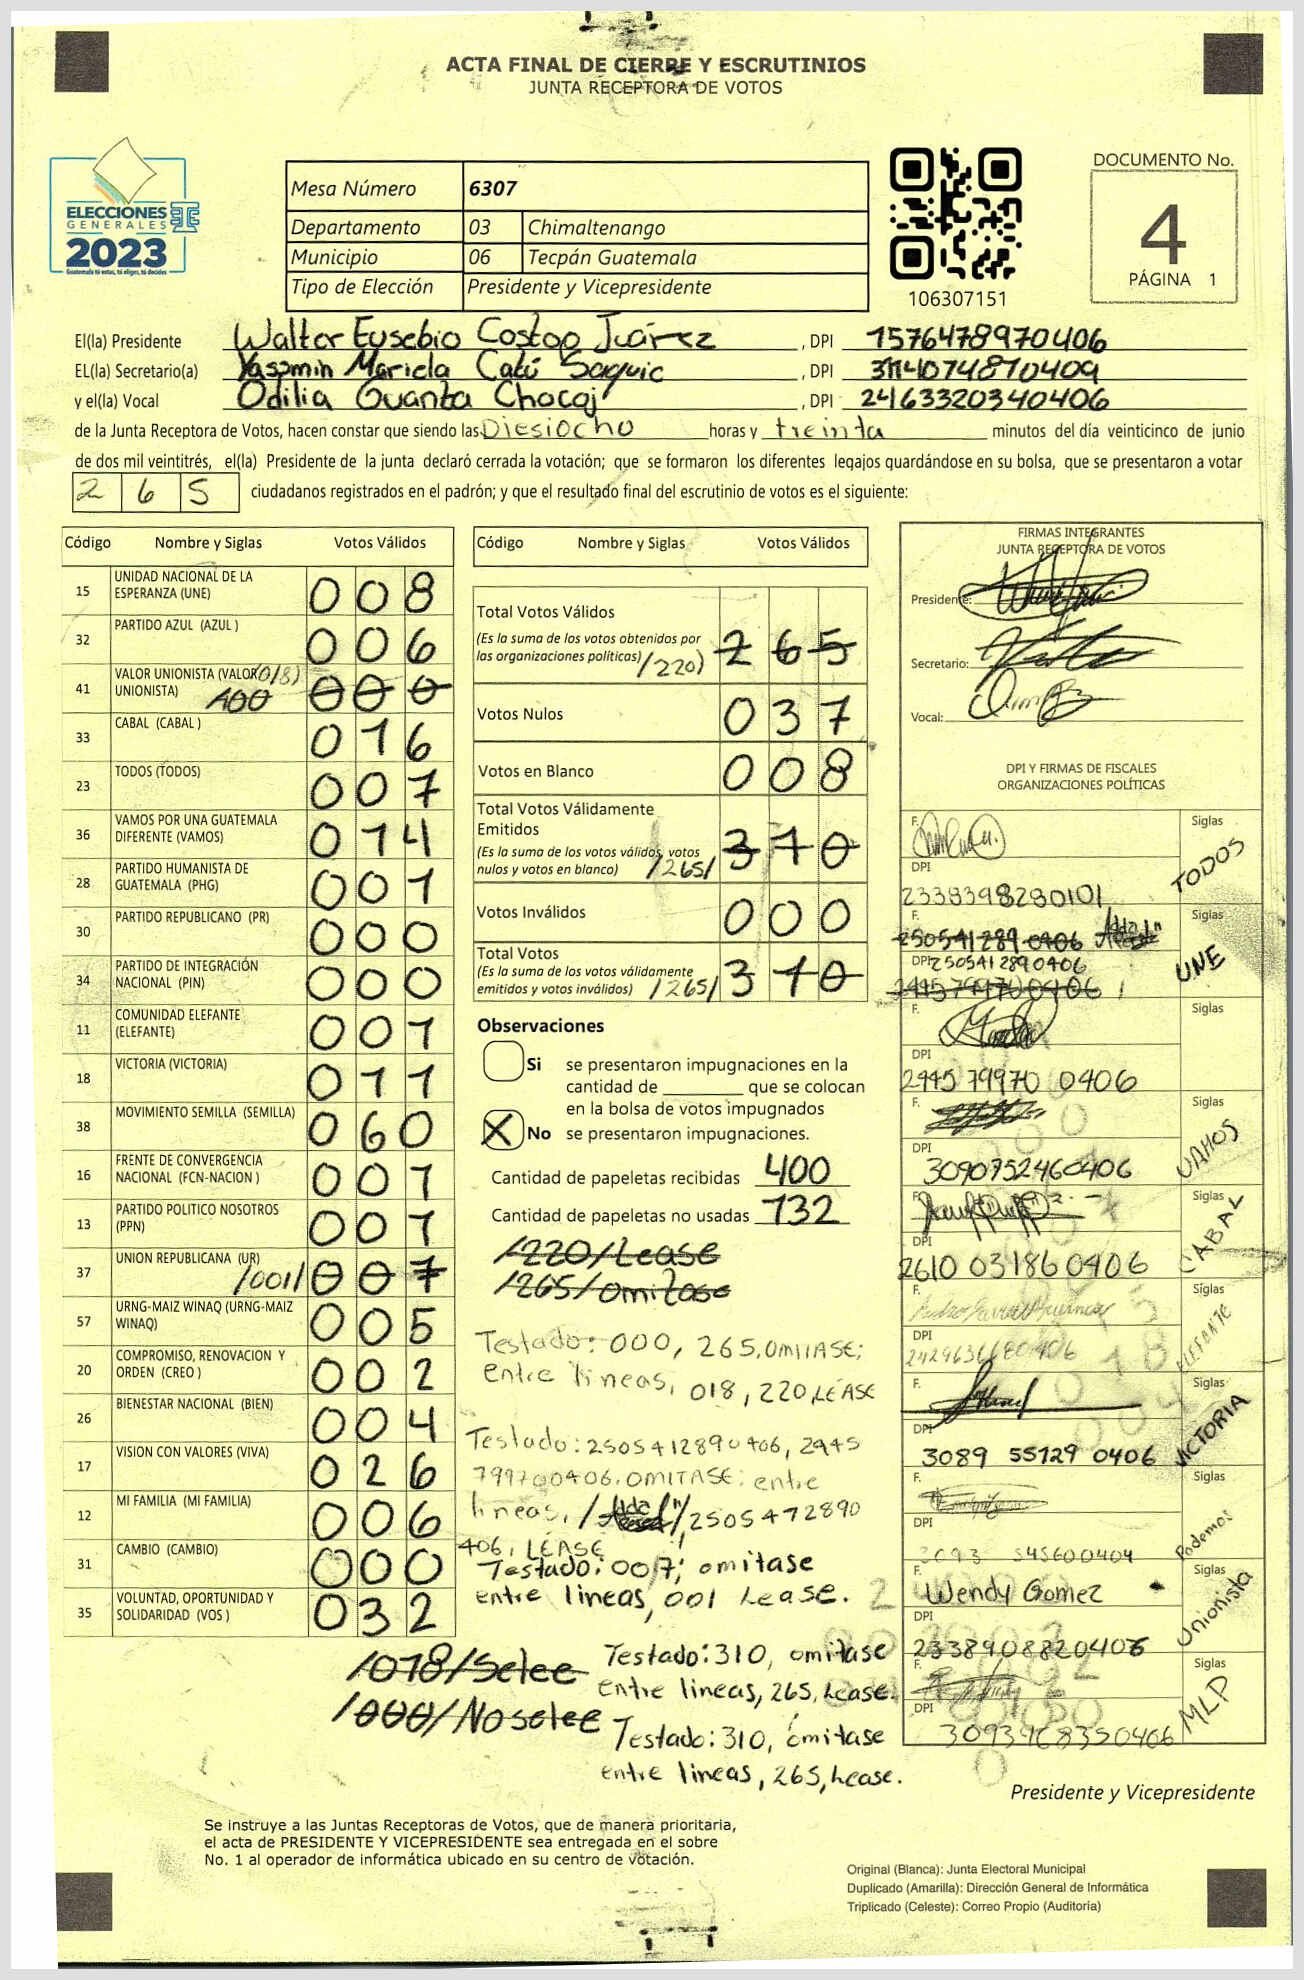 ACTA FINAL DE CIERRE Y ESCRUTINIOS
JUNTA RECEPTORA DE VOTOS
ELECCIONES
GENERALES
2023
Guatemala tú votas, tú eliges, tú decides
Mesa Número 6307
Departamento 03 Chimaltenango
Municipio 06 Tecpán Guatemala
Tipo de Elección Presidente y Vicepresidente
106307151
DOCUMENTO No.
4
PÁGINA 1
El(la) Presidente Walter Eusebio Costop Juárez, DPI 1576478970406
EL(la) Secretario(a) Yassmin Mariela Catú Saquic, DPI 3114074870409
y el(la) Vocal Odilia Guanta Chocoj, DPI 2463320340406
de la Junta Receptora de Votos, hacen constar que siendo las Diesiocho horas y treinta minutos del día veinticinco de junio
de dos mil veintitrés, el(la) Presidente de la junta declaró cerrada la votación; que se formaron los diferentes legajos guardándose en su bolsa, que se presentaron a votar
265 ciudadanos registrados en el padrón; y que el resultado final del escrutinio de votos es el siguiente:
Código Nombre y Siglas Votos Válidos
15 UNIDAD NACIONAL DE LA ESPERANZA (UNE) 008
32 PARTIDO AZUL (AZUL ) 006
41 VALOR UNIONISTA (VALOR UNIONISTA) /018/ 000
33 CABAL (CABAL ) 016
23 TODOS (TODOS) 007
36 VAMOS POR UNA GUATEMALA DIFERENTE (VAMOS) 014
28 PARTIDO HUMANISTA DE GUATEMALA (PHG) 001
30 PARTIDO REPUBLICANO (PR) 000
34 PARTIDO DE INTEGRACIÓN NACIONAL (PIN) 000
11 COMUNIDAD ELEFANTE (ELEFANTE) 001
18 VICTORIA (VICTORIA) 011
38 MOVIMIENTO SEMILLA (SEMILLA) 060
16 FRENTE DE CONVERGENCIA NACIONAL (FCN-NACION ) 001
13 PARTIDO POLITICO NOSOTROS (PPN) 001
37 UNION REPUBLICANA (UR) /001/ 007
57 URNG-MAIZ WINAQ (URNG-MAIZ WINAQ) 005
20 COMPROMISO, RENOVACION Y ORDEN (CREO ) 002
26 BIENESTAR NACIONAL (BIEN) 004
17 VISION CON VALORES (VIVA) 026
12 MI FAMILIA (MI FAMILIA) 006
31 CAMBIO (CAMBIO) 000
35 VOLUNTAD, OPORTUNIDAD Y SOLIDARIDAD (VOS ) 032
/018/Selee
/000/No selee
Código Nombre y Siglas Votos Válidos
Total Votos Válidos
(Es la suma de los votos obtenidos por
las organizaciones políticas) /220/ 265
Votos Nulos 037
Votos en Blanco 008
Total Votos Válidamente
Emitidos
(Es la suma de los votos válidos, votos
nulos y votos en blanco) /265/ 310
Votos Inválidos 000
Total Votos
(Es la suma de los votos válidamente
emitidos y votos inválidos) /265/ 310
Observaciones
Si se presentaron impugnaciones en la
cantidad de ________ que se colocan
en la bolsa de votos impugnados
X No se presentaron impugnaciones.
Cantidad de papeletas recibidas 400
Cantidad de papeletas no usadas 132
/220/Lease
/265/Omitase
Testado: 000, 265, OMITASE;
Entre lineas, 018, 220, LEASE
Testado: 2505412890406, 2445
799700406. OMITASE: entre
lineas, 2505412890
406, LEASE
Testado: 007; omitase
entre lineas, 001 Lease.
Testado: 310, omitase
Entre lineas, 265, Lease.
Testado: 310, omitase
entre lineas, 265, Lease.
FIRMAS INTEGRANTES
JUNTA RECEPTORA DE VOTOS
Presidente:
Secretario:
Vocal:
DPI Y FIRMAS DE FISCALES
ORGANIZACIONES POLÍTICAS
F. Siglas
DPI TODOS
2338398280101
F. Siglas
2505412890406
DPI 2505412890406 UNE
2445799700406
F. Siglas
DPI
2445 79970 0406
F. Siglas
DPI VAMOS
3090752460406
F. Siglas
DPI CABAL
2610 03186 0406
F. Siglas
DPI ELEFANTE
2429636680406
F. Siglas
DPI VICTORIA
3089 55129 0406
F. Siglas
DPI Podemos
3093 545600404
F. Siglas
Wendy Gomez
DPI Unionista
2338908820406
F. Siglas
DPI MLP
3093468350406
Presidente y Vicepresidente
Se instruye a las Juntas Receptoras de Votos, que de manera prioritaria,
el acta de PRESIDENTE Y VICEPRESIDENTE sea entregada en el sobre
No. 1 al operador de informática ubicado en su centro de votación.
Original (Blanca): Junta Electoral Municipal
Duplicado (Amarilla): Dirección General de Informática
Triplicado (Celeste): Correo Propio (Auditoría)